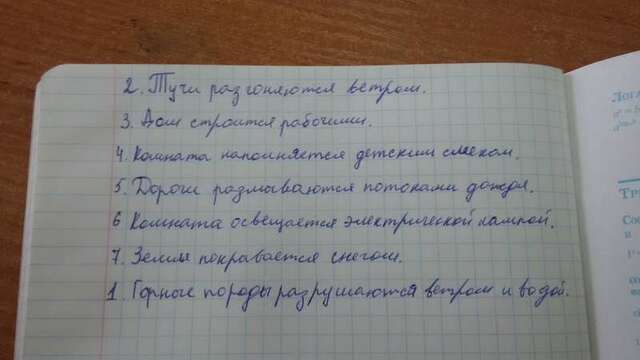 2. Тучи разгоняются ветром.
3. Дом строится рабочими.
4. Комната наполняется детским смехом.
5. Дороги размываются потоками дождя.
6 Комната освещается электрической лампой.
7. Земля покрывается снегом.
1. Горные породы разрушаются ветром и водой.